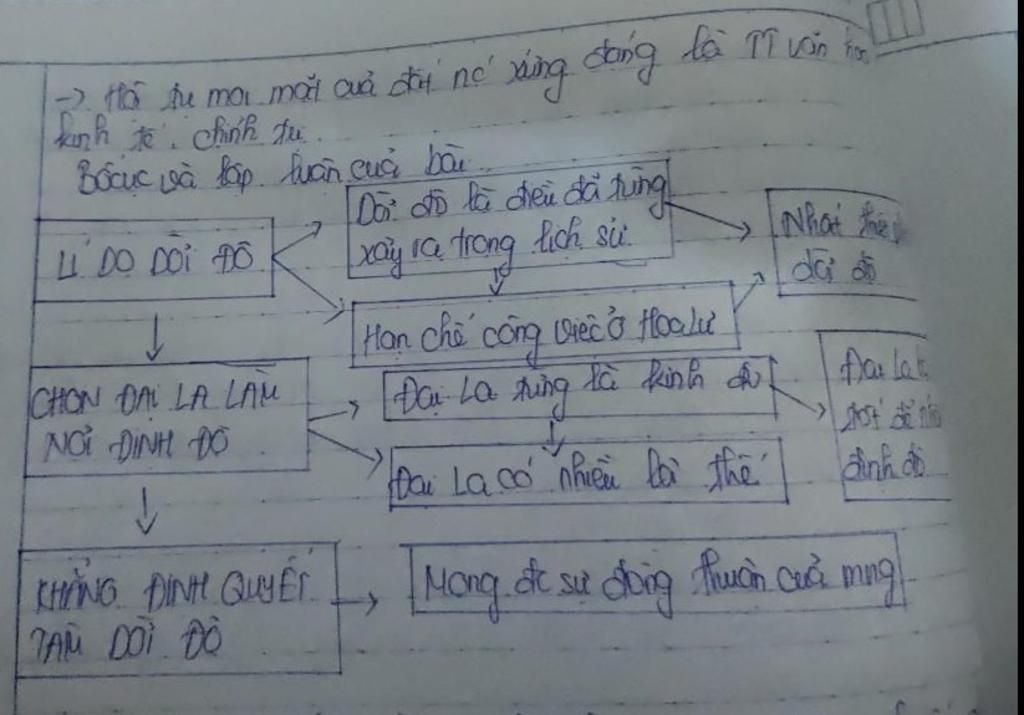 -> Hồ tu mọi mặt quả đất nc' xứng đáng là TT văn
kinh tế, chính trị.
Bố cục và lập luận của bài.
LÍ DO DỜI ĐÔ
Dời đô là điều đã từng
xảy ra trong lịch sử.
Nhất
dời đô
Hạn chế công việc ở Hoa Lư
CHỌN ĐẠI LA LÀM
NƠI ĐỊNH ĐÔ
Đại La từng là kinh đô
Đại La
để
định đô
Đại La có nhiều lợi thế
KHẲNG ĐỊNH QUYẾT
TÂM DỜI ĐÔ
Mong đc sự đồng thuận của mng